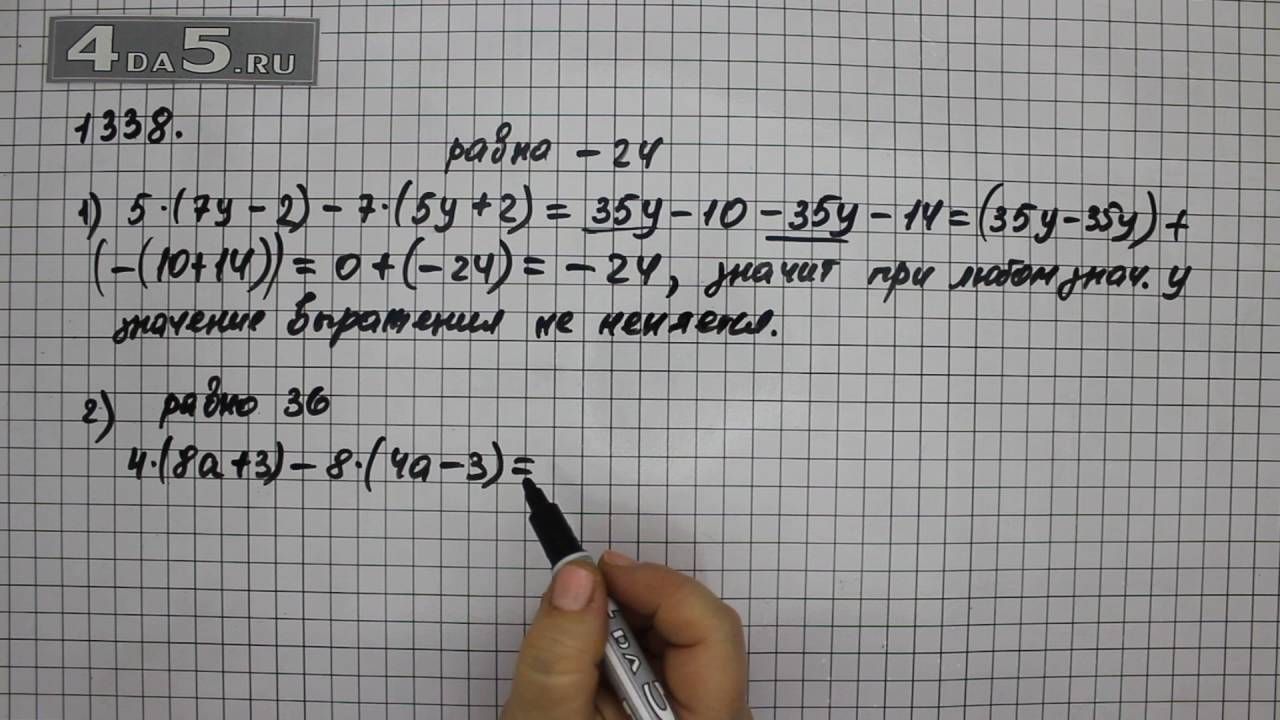 4DA5.RU
1338.
равна - 24
1) 5·(7y-2)-7·(5y+2)=35y-10-35y-14=(35y-35y)+
(-(10+14))=0+(-24)=-24, значит при любом знач. y
значение выражения не меняется.
2) равно 36
4·(8a+3)-8·(4a-3)=